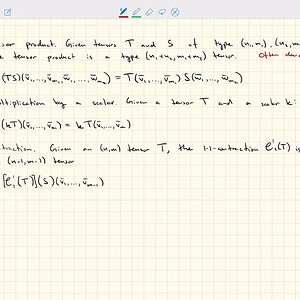 nsor product. Given tensors T and S of type (n₁,m₁), (n₂,m₂
e tensor product is a type (n₁+n₂, m₁+m₂) tensor. Often den
(TS)(v̄₁,...,v̄ₘ₁, w̄₁,..., w̄ₘ₂) = T(v̄₁,...,v̄ₘ₁) S(w̄₁,..., w̄ₘ₂)
ultiplication by a scalar. Given a tensor T and a scalar k:
(kT)(v̄₁,...,v̄ₘ) = kT(v̄₁,...,v̄ₘ)
traction. Given an (n,m) tensor T, the 1-1-contraction C¹₁(T) is
(n-1,m-1) tensor
[C¹₁(T)](S)(v̄₁,...,v̄ₘ₋₁)